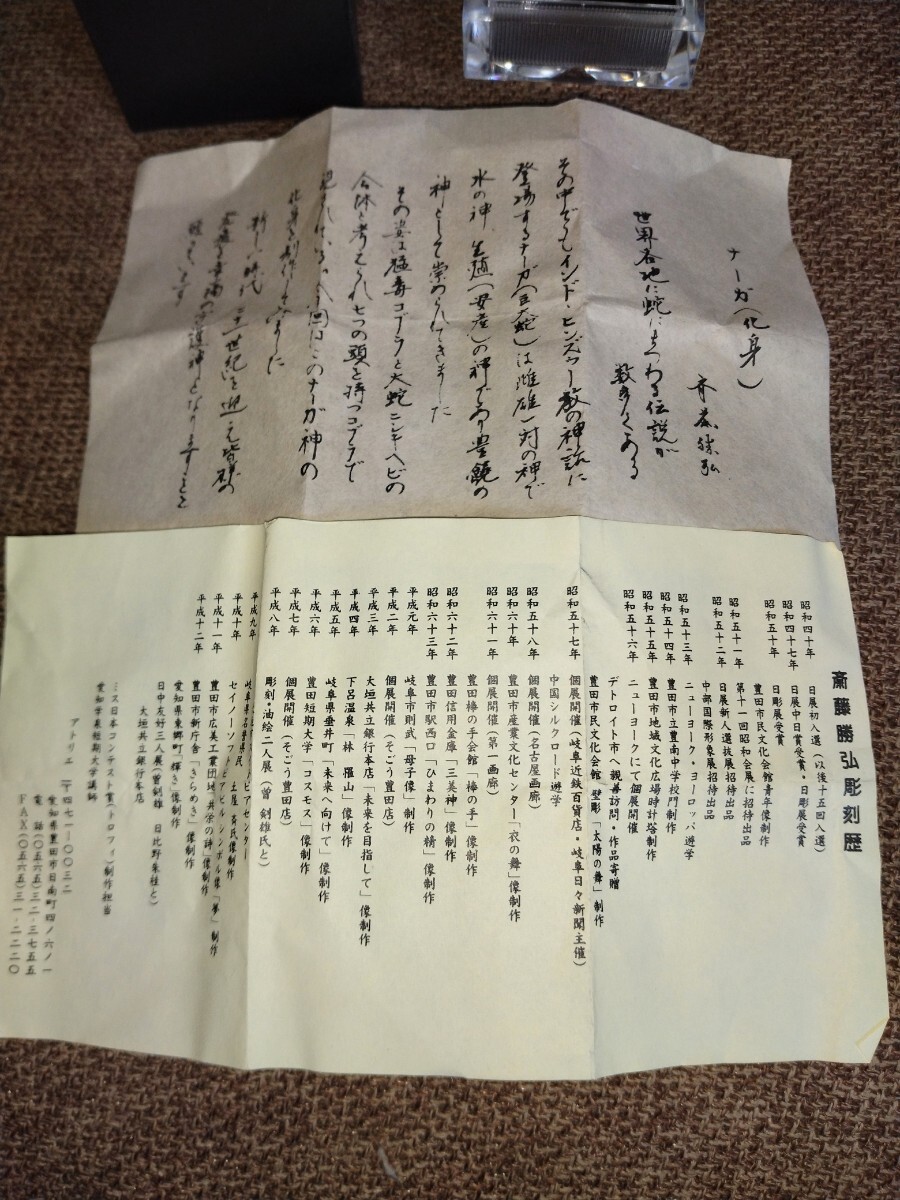 ナーガ（化身）
斉藤勝弘
世界各地に蛇にまつわる伝説が
数多くある
その中でもインド・ヒンズゥー教の神話に
登場するナーガ（巨大蛇）は雌雄一対の神で
水の神、生殖（安産）の神であり豊饒の
神として崇められてきました
その姿は猛毒コブラと大蛇ニシキヘビの
合体と考えられ七つの頭を持つコブラで
現されているが今回はこのナーガ神の
化身を制作してみました
新しい時代 二十一世紀を迎え皆様の
守護神となりますことを
願っています
斎藤勝弘彫刻歴
昭和四十年 日展初入選（以後十五回入選）
昭和四十七年 日展中日賞受賞・日彫展受賞
日彫展受賞
昭和五十年 豊田市民文化会館青年像制作
第十一回昭和会展に招待出品
昭和五十一年 日展新人選抜展招待出品
昭和五十二年 中部国際形象展招待出品
昭和五十三年 ニューヨーク・ヨーロッパ遊学
昭和五十四年 豊田市立豊南中学校門制作
昭和五十五年 豊田市地域文化広場時計塔制作
昭和五十六年 ニューヨークにて個展開催
デトロイト市へ親善訪問・作品寄贈
豊田市民文化会館 壁彫「太陽の舞」制作
昭和五十七年 個展開催（岐阜近鉄百貨店・岐阜日々新聞主催）
中国シルクロード遊学
昭和五十八年 個展開催（名古屋画廊）
昭和六十年 豊田市産業文化センター「衣の舞」像制作
昭和六十一年 個展開催（第一画廊）
豊田棒の手会館「棒の手」像制作
昭和六十二年 豊田信用金庫「三美神」像制作
昭和六十三年 豊田市駅西口「ひまわりの精」像制作
平成元年 岐阜市則武「母子像」制作
平成二年 個展開催（そごう豊田店）
平成三年 大垣共立銀行本店「未来を目指して」像制作
平成四年 下呂温泉「林 羅山」像制作
平成五年 岐阜県垂井町「未来へ向けて」像制作
平成六年 豊田短期大学「コスモス」像制作
平成七年 個展開催（そごう豊田店）
平成八年 彫刻・油絵二人展（曽 剣雄氏と）
平成九年
セイノーソフトピアビルシンボル像「夢」制作
平成十年 豊田市広美工業団地「共学の碑」像制作
平成十一年 豊田市新庁舎「きらめき」像制作
平成十二年 愛知県東郷町「輝き」像制作
日中友好三人展（曽剣雄 日比野朱桂と）
大垣共立銀行本店
ミス日本コンテスト賞（トロフィ）制作担当
愛知学泉短期大学講師
アトリエ 〒四七一-〇〇三二
愛知県豊田市日南町四ノ六ノ一
電 話（〇五六五）三二-三七五五
ＦＡＸ（〇五六五）三一-二二二〇